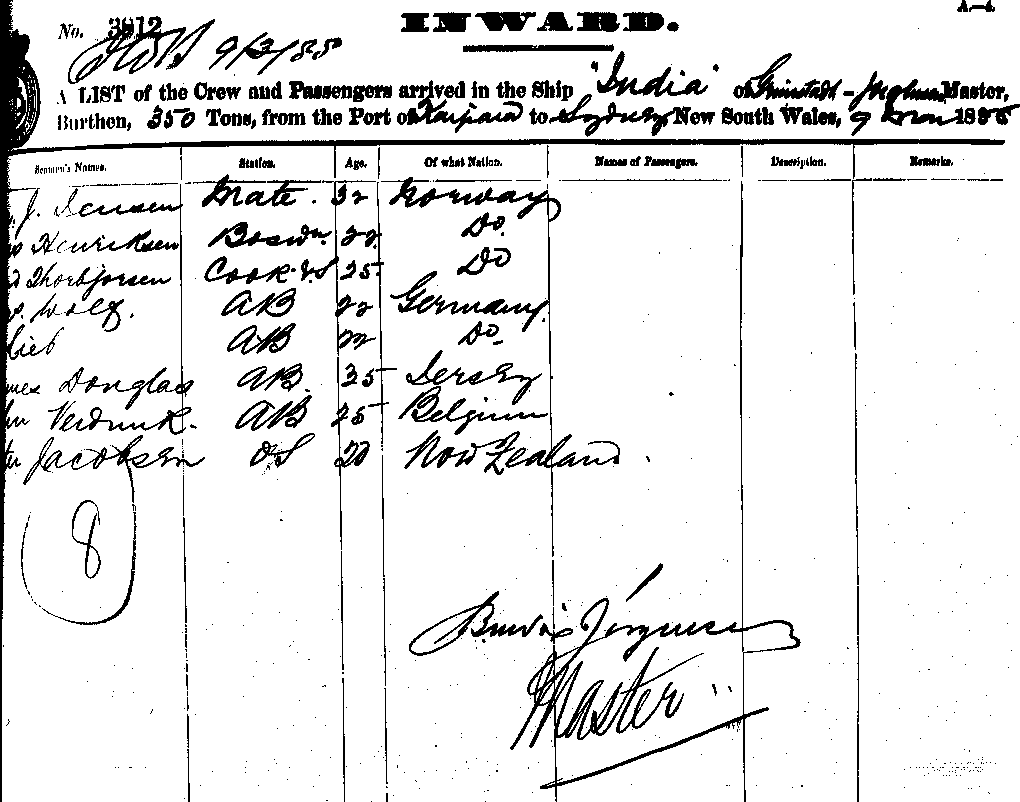 A.—4.
No. 3912 INWARD.
9/3/85
A LIST of the Crew and Passengers arrived in the Ship "India" of Grimstadt - Master,
Burthen, 350 Tons, from the Port of Kaipara to Sydney New South Wales, 9 1885
Seamen's Names. Station. Age. Of what Nation. Names of Passengers. Description. Remarks.
J. Jensen Mate. 32 Norway
Henriksen Boswn. 22 Do.
Thorbjorsen Cook & S 25 Do
Wolf. AB 22 Germany.
AB 22 Do.
Douglas AB. 35 Jersey.
AB 25 Belgium
Jacobsen OS 20 New Zealand.
8
Master